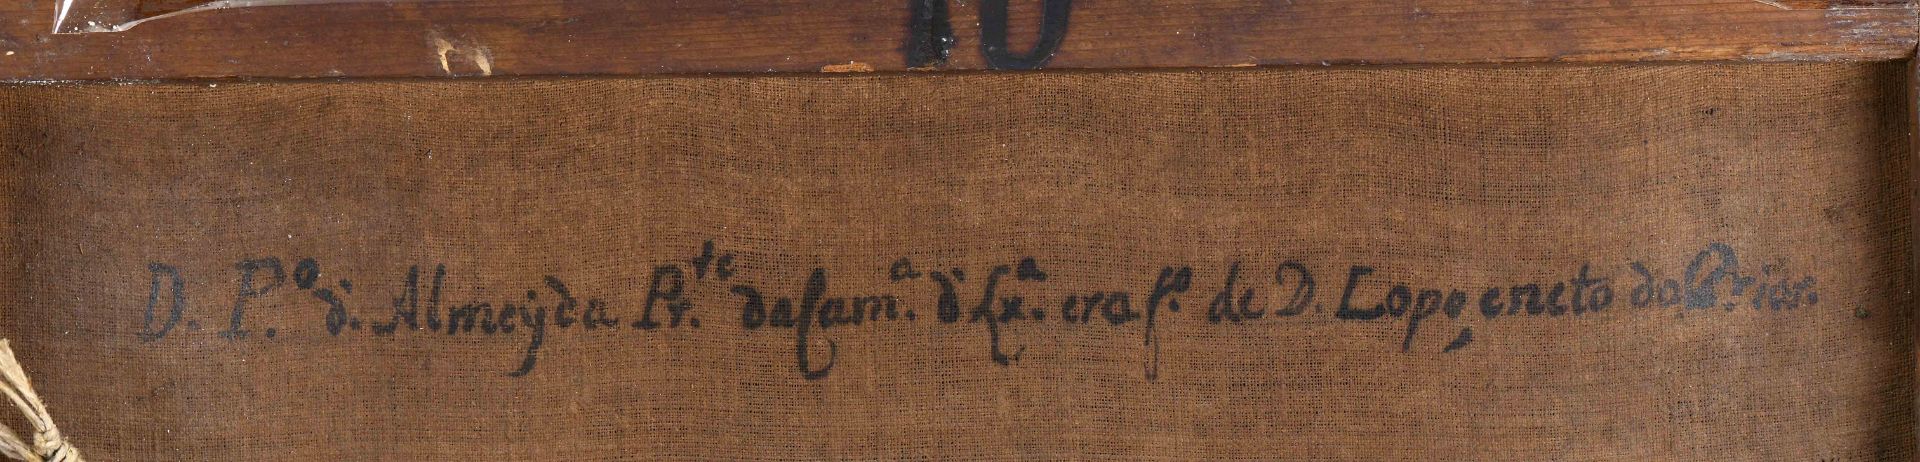 10
D. P.º d. Almeyda Pr.te da Cam.ª d Lx.ª era f.º de D. Lopo, e neto do Prior.